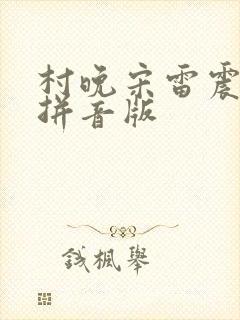 村晚宋雷震
拼音版
钱楓舉